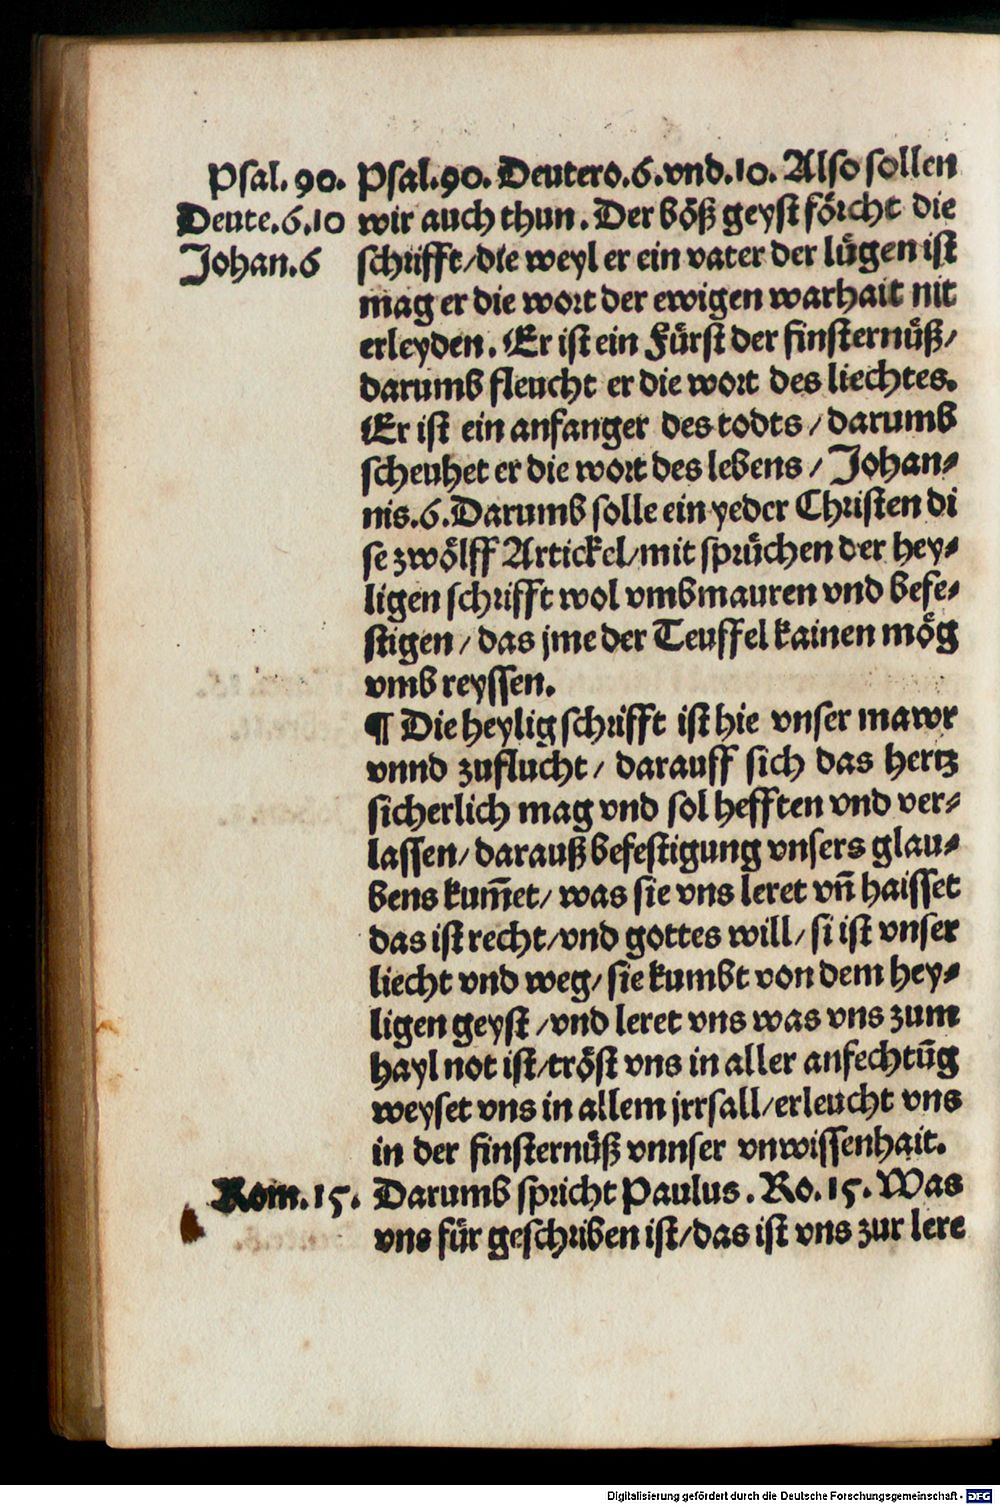 Psal. 90.
Deute.6.10
Johan.6
Psal.90. Deutero.6.vnd.10. Also sollen
wir auch thun. Der böß geyst förcht die
schrifft/die weyl er ein vater der lügen ist
mag er die wort der ewigen warhait nit
erleyden. Er ist ein Fürst der finsternüß/
darumb fleucht er die wort des liechtes.
Er ist ein anfanger des todts / darumb
scheuhet er die wort des lebens / Johan-
nis.6.Darumb solle ein yeder Christen di
se zwölff Artickel/mit sprüchen der hey-
ligen schrifft wol vmbmauren vnd befe-
stigen / das jme der Teuffel kainen mög
vmb reyssen.
¶ Die heylig schrifft ist hie vnser mawr
vnnd zuflucht / darauff sich das hertz
sicherlich mag vnd sol hefften vnd ver-
lassen/darauß befestigung vnsers glau-
bens kum̄et/ was sie vns leret vn̄ haisset
das ist recht/vnd gottes will/ si ist vnser
liecht vnd weg/ sie kumbt von dem hey-
ligen geyst /vnd leret vns was vns zum
hayl not ist/tröst vns in aller anfechtūg
weyset vns in allem jrrsall/erleucht vns
in der finsternüß vnnser vnwissenhait.
Rom. 15.
Darumb spricht Paulus. Ro.15. Was
vns für geschriben ist/das ist vns zur lere
Digitalisierung gefördert durch die Deutsche Forschungsgemeinschaft - DFG